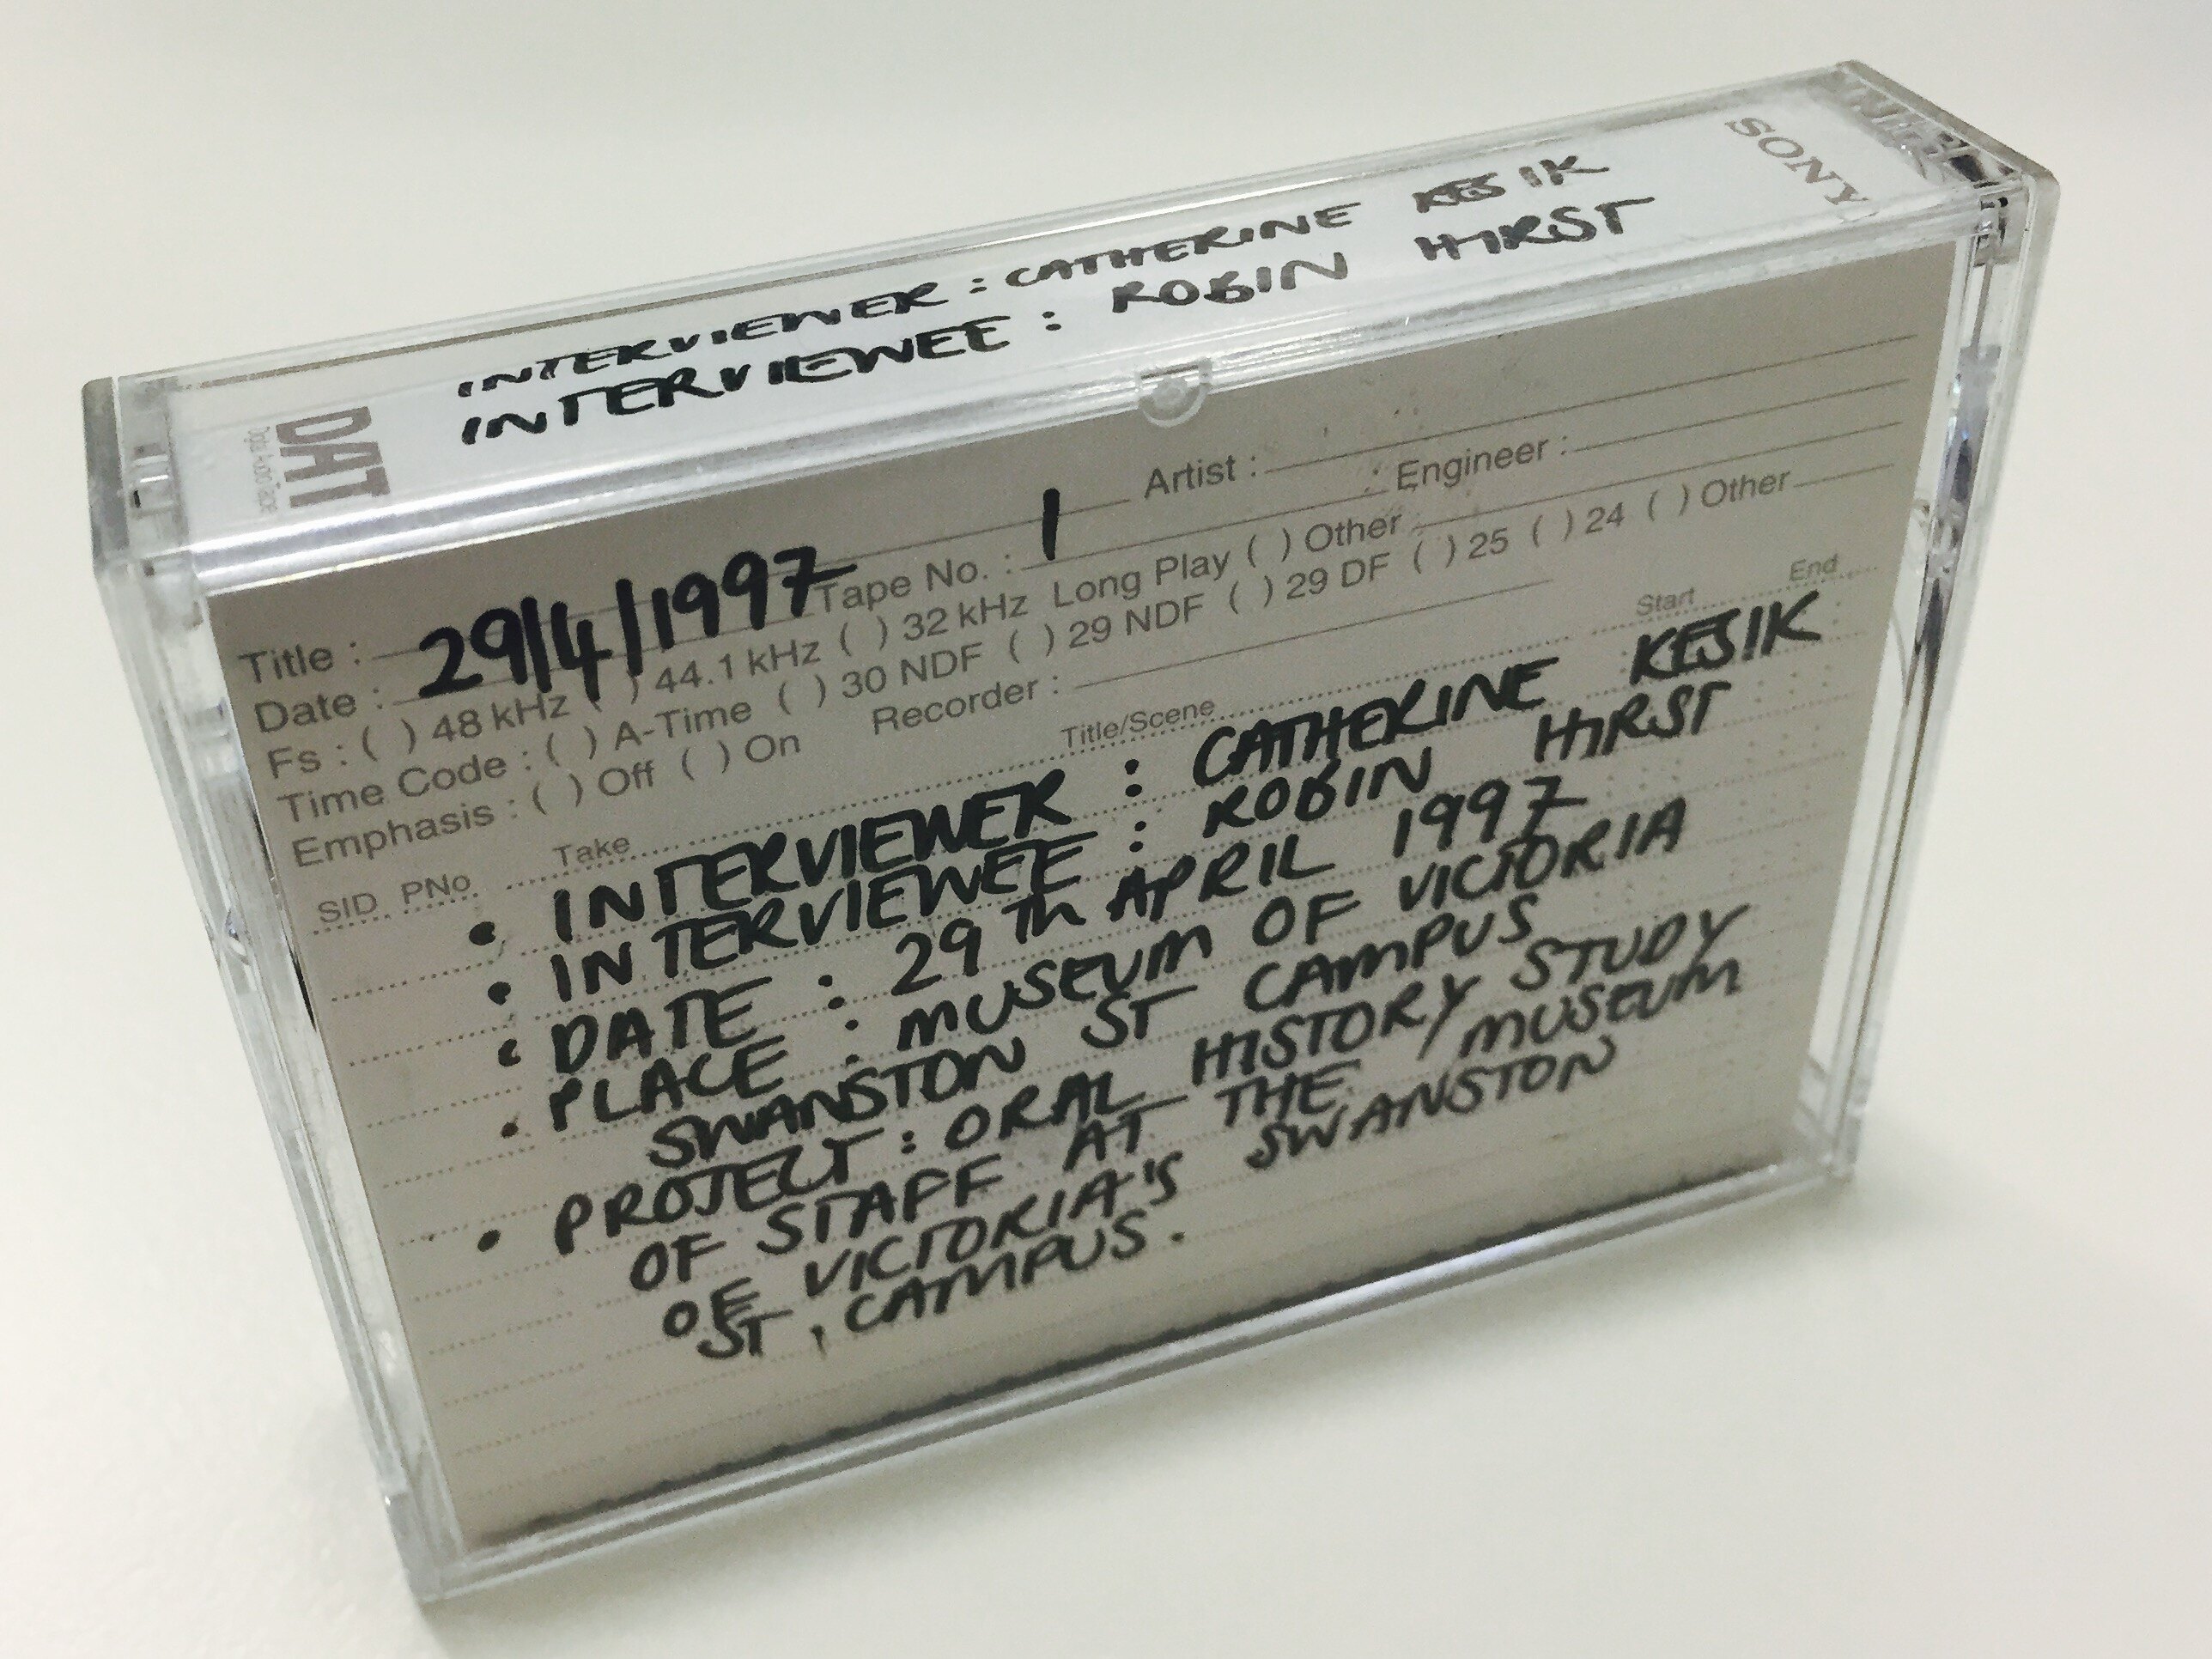 INTERVIEWER : CATHERINE KESIK
INTERVIEWEE : ROBIN HIRST
SONY
DAT
Digital Audio Tape
Title :
Artist :
Date : 29/4/1997 Tape No. : 1 Engineer :
Fs : ( ) 48 kHz ( ) 44.1 kHz ( ) 32 kHz Long Play ( ) Other
Time Code : ( ) A-Time ( ) 30 NDF ( ) 29 NDF ( ) 29 DF ( ) 25 ( ) 24 ( ) Other
Emphasis : ( ) Off ( ) On Recorder :
SID PNo. Take Title/Scene Start End
• INTERVIEWER : CATHERINE KESIK
• INTERVIEWEE : ROBIN HIRST
• DATE : 29Th APRIL 1997
• PLACE : MUSEUM OF VICTORIA
SWANSTON ST CAMPUS
• PROJECT : ORAL HISTORY STUDY
OF STAFF AT THE MUSEUM
OF VICTORIA'S SWANSTON
ST, CAMPUS.